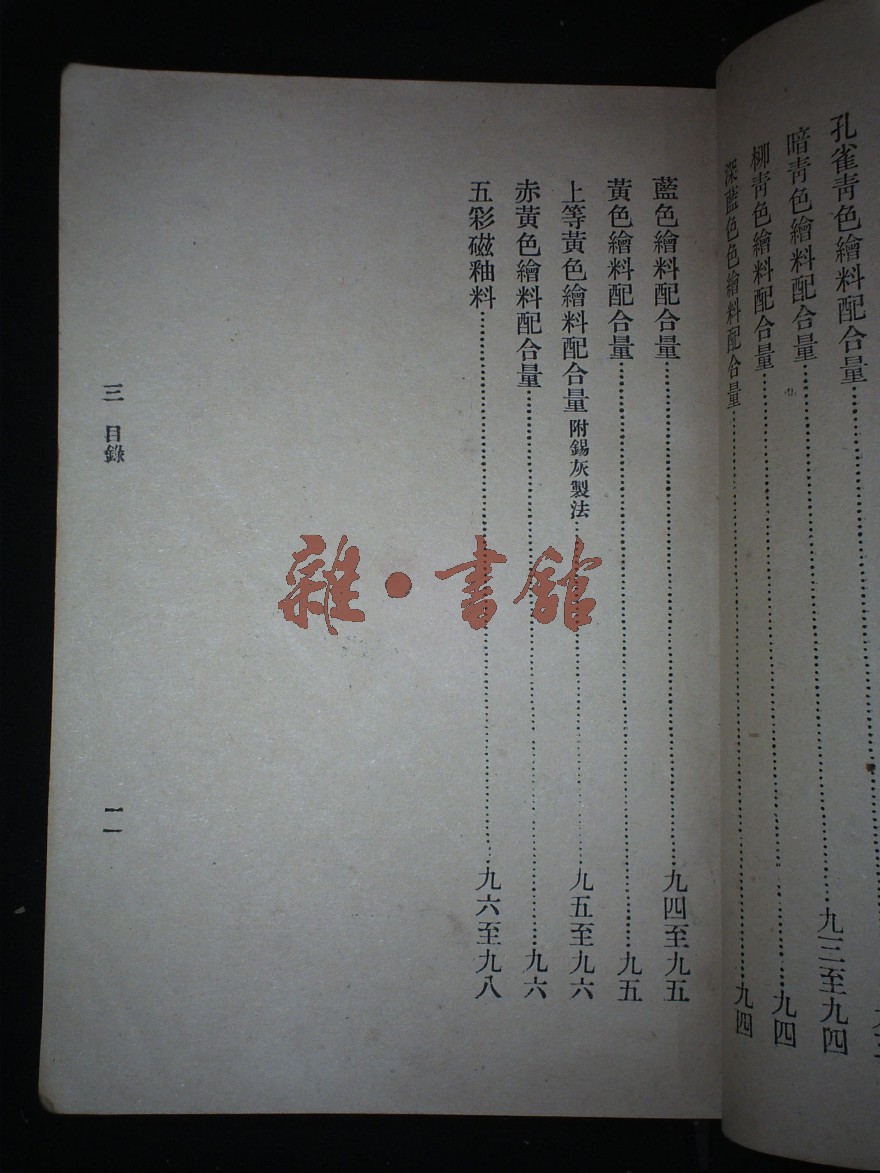 孔雀青色繪料配合量
暗青色繪料配合量……九三至九四
柳青色繪料配合量……九四
深藍色色繪料配合量……九四
藍色繪料配合量……九四至九五
黃色繪料配合量……九五
上等黃色繪料配合量 附錫灰製法……九五至九六
赤黃色繪料配合量……九六
五彩磁釉料……九六至九八
三 目錄
一一
雜·書館